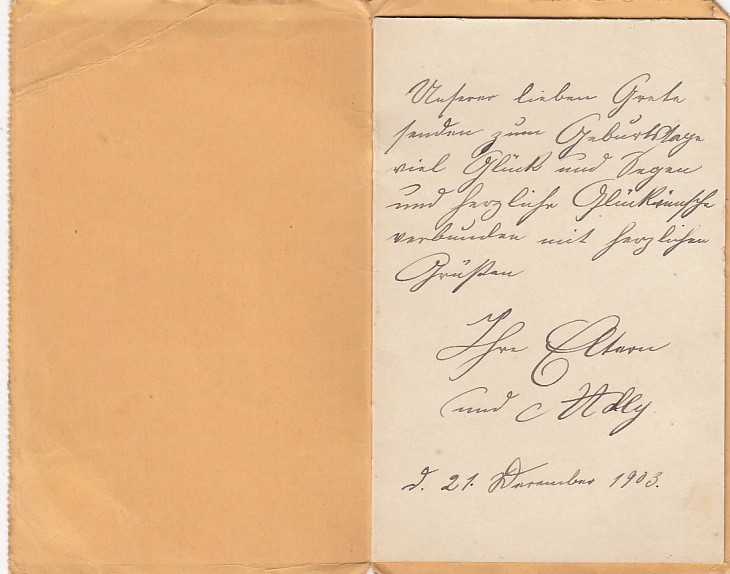 Unserer lieben Grete
senden zum Geburtstage
viel Glück und Segen
und herzliche Glückwünsche
verbunden mit herzlichen
Grüßen
Ihre Eltern
und
d. 21. Dezember 1903.